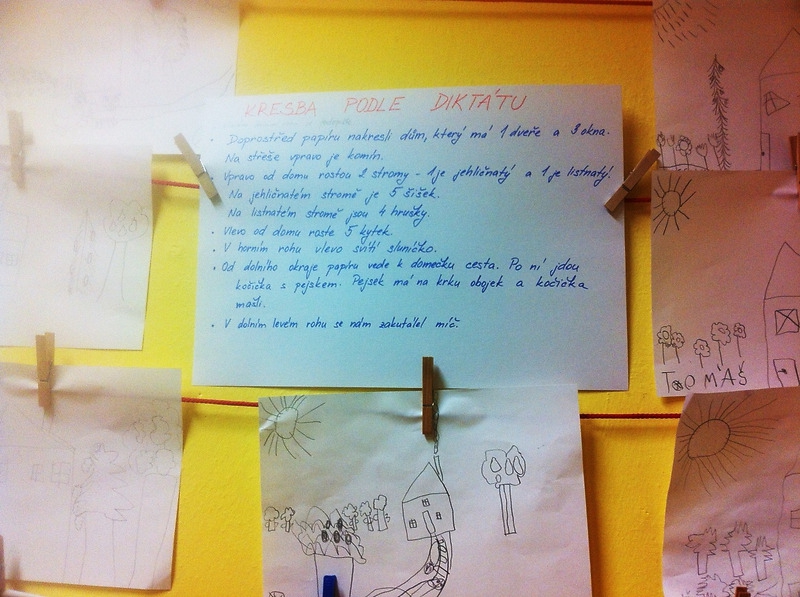 KRESBA PODLE DIKTÁTU
• Doprostřed papíru nakresli dům, který má 1 dveře a 3 okna.
Na střeše vpravo je komín.
• Vpravo od domu rostou 2 stromy - 1 je jehličnatý a 1 je listnatý.
Na jehličnatém stromě je 5 šišek.
Na listnatém stromě jsou 4 hrušky.
• Vlevo od domu roste 5 kytek.
• V horním rohu vlevo svítí sluníčko.
• Od dolního okraje papíru vede k domečku cesta. Po ní jdou
kočička s pejskem. Pejsek má na krku obojek a kočička
mašli.
• V dolním levém rohu se nám zakutálel míč.
TOMÁŠ